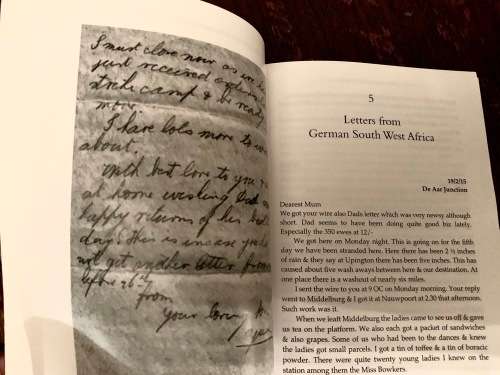 I must close now as we have
just received orders to
strike camp & be ready
more.
I have lots more to
about.
With best love to you
at home wishing Dad
happy returns of his
day. This is incase you
not get another letter from
before 26-7
from
Your loving
5
Letters from
German South West Africa
19/2/15
De Aar Junction
Dearest Mum
We got your wire also Dads letter which was very newsy although
short. Dad seems to have been doing quite good biz lately.
Especially the 350 ewes at 12/-
We got here on Monday night. This is going on for the fifth
day we have been stranded here. Here there has been 2 ½ inches
of rain & they say at Upington there has been five inches. This has
caused about five wash aways between here & our destination. At
one place there is a washout of nearly six miles.
I sent the wire to you at 9 OC on Monday morning. Your reply
went to Middelburg & I got it at Nauwpoort at 2.30 that afternoon.
Such work it was.
When we leaft Middelburg the ladies came to see us off & gave
us tea on the platform. We also each got a packet of sandwiches
& also grapes. Some of us who had been to the dances & knew
the ladies got small parcels. I got a tin of toffee & a tin of boracic
powder. There were quite twenty young ladies I knew on the
station among them the Miss Bowkers.